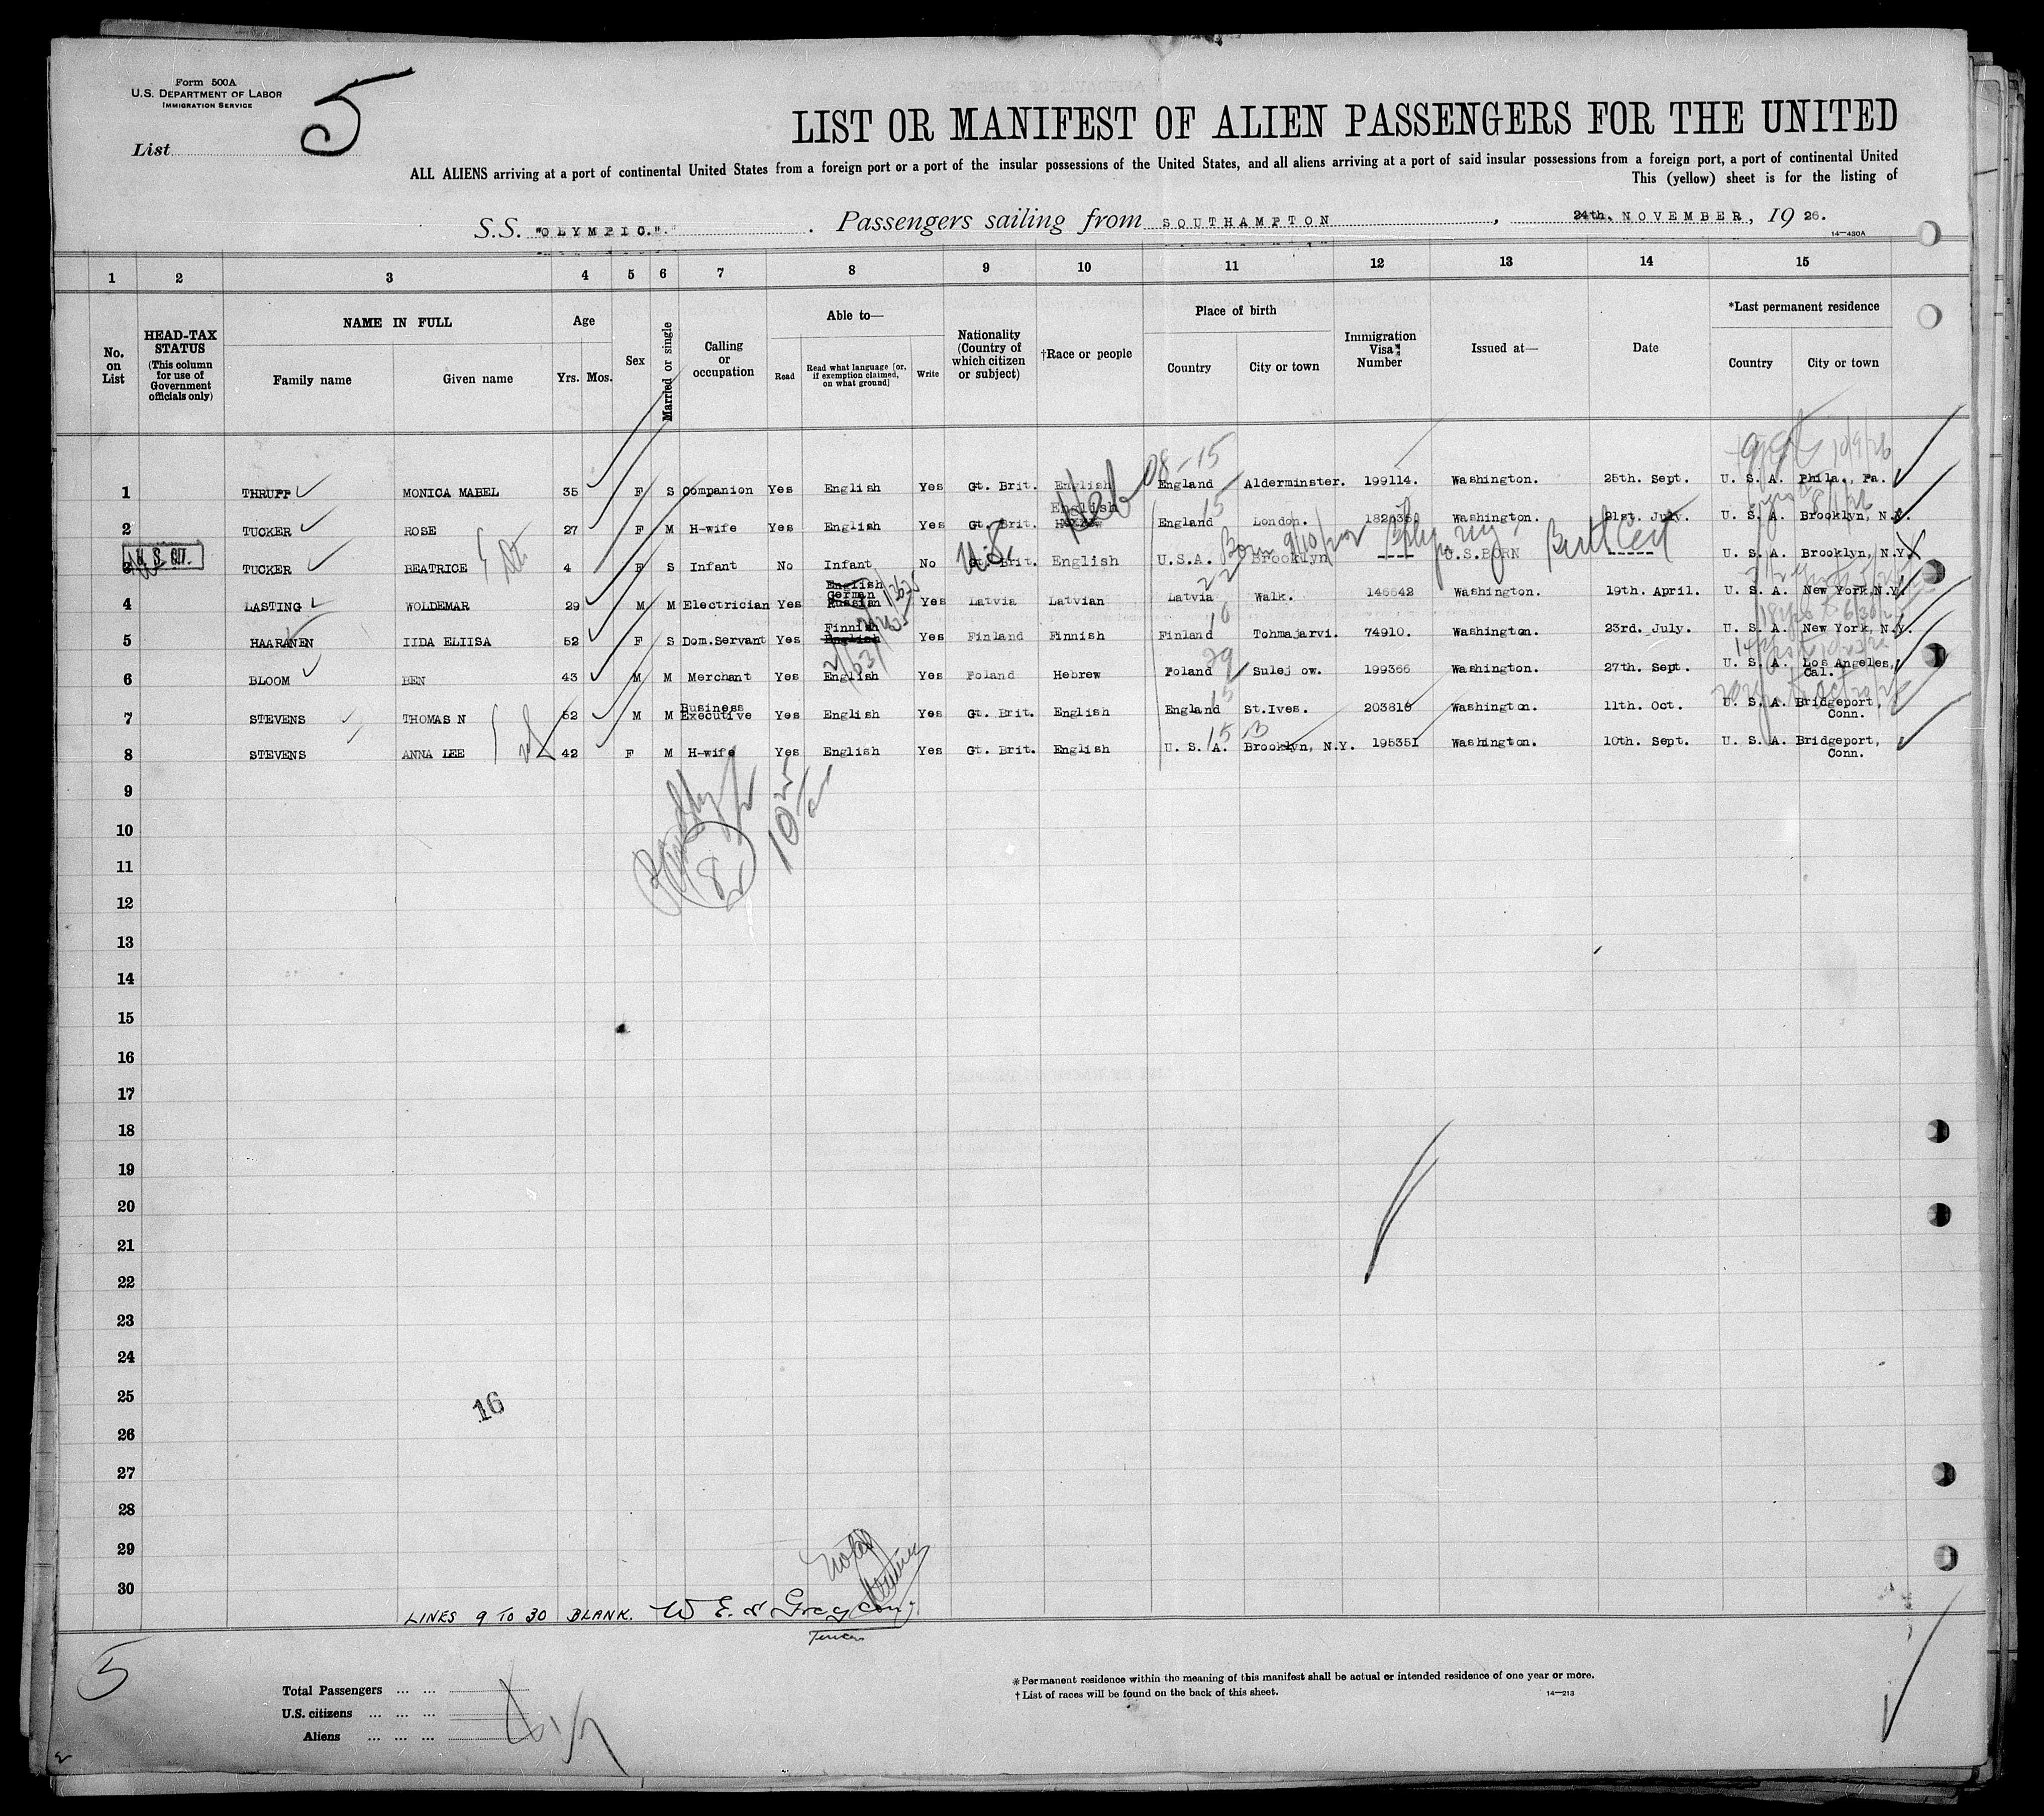 Form 500A
U.S. DEPARTMENT OF LABOR
IMMIGRATION SERVICE
List 5
LIST OR MANIFEST OF ALIEN PASSENGERS FOR THE UNITED
ALL ALIENS arriving at a port of continental United States from a foreign port or a port of the insular possessions of the United States, and all aliens arriving at a port of said insular possessions from a foreign port, a port of continental United
This (yellow) sheet is for the listing of
S.S. "OLYMPIC." Passengers sailing from SOUTHAMPTON, 24th. NOVEMBER, 19 26.
14—430A
1 2 3 4 5 6 7 8 9 10 11 12 13 14 15
No. on List
HEAD-TAX STATUS (This column for use of Government officials only)
NAME IN FULL
Family name Given name
Age
Yrs. Mos.
Sex
Married or single
Calling or occupation
Able to—
Read
Read what language [or, if exemption claimed, on what ground]
Write
Nationality (Country of which citizen or subject)
†Race or people
Place of birth
Country City or town
Immigration Visa Number
Issued at—
Date
*Last permanent residence
Country City or town
08-15
1 THRUPP MONICA MABEL 35 F S Companion Yes English Yes Gt. Brit. English England Alderminster. 199114. Washington. 25th. Sept. U. S. A. Phila., Pa.
Heb 15
2 TUCKER ROSE 27 F M H-wife Yes English Yes Gt. Brit. English England London. Washington. 21st. July. U. S. A. Brooklyn, N.Y.
U. S. CIT. U.S. Born
3 TUCKER BEATRICE 4 F S Infant No Infant No Gt. Brit. English U.S.A. Brooklyn ---- U.S.BORN ----- U. S. A. Brooklyn, N.Y.
English
German
4 LASTING WOLDEMAR 29 M M Electrician Yes Russian Yes Latvia Latvian Latvia Walk. 146642 Washington. 19th. April. U. S. A. New York,N.Y.
Finnish
5 HAARANEN IIDA ELIISA 52 F S Dom.Servant Yes English Yes Finland Finnish Finland Tohmajarvi. 74910. Washington. 23rd. July. U. S. A. New York, N.Y.
6 BLOOM BEN 43 M M Merchant Yes English Yes Poland Hebrew Poland Sulejow. 199366 Washington. 27th. Sept. U. S. A. Los Angeles, Cal.
15
7 STEVENS THOMAS N 52 M M Business Executive Yes English Yes Gt. Brit. English England St.Ives. 203818 Washington. 11th. Oct. U. S. A. Bridgeport, Conn.
15
8 STEVENS ANNA LEE 42 F M H-wife Yes English Yes Gt. Brit. English U. S. A. Brooklyn, N.Y. 195351 Washington. 10th. Sept. U. S. A. Bridgeport, Conn.
9
10
8
11
12
13
14
15
16
17
18
19
20
21
22
23
24
25
16
26
27
28
29
30
LINES 9 TO 30 BLANK.
5
Total Passengers ... ...
U.S. citizens ... ... ...
Aliens ... ... ...
*Permanent residence within the meaning of this manifest shall be actual or intended residence of one year or more.
†List of races will be found on the back of this sheet.
14—213